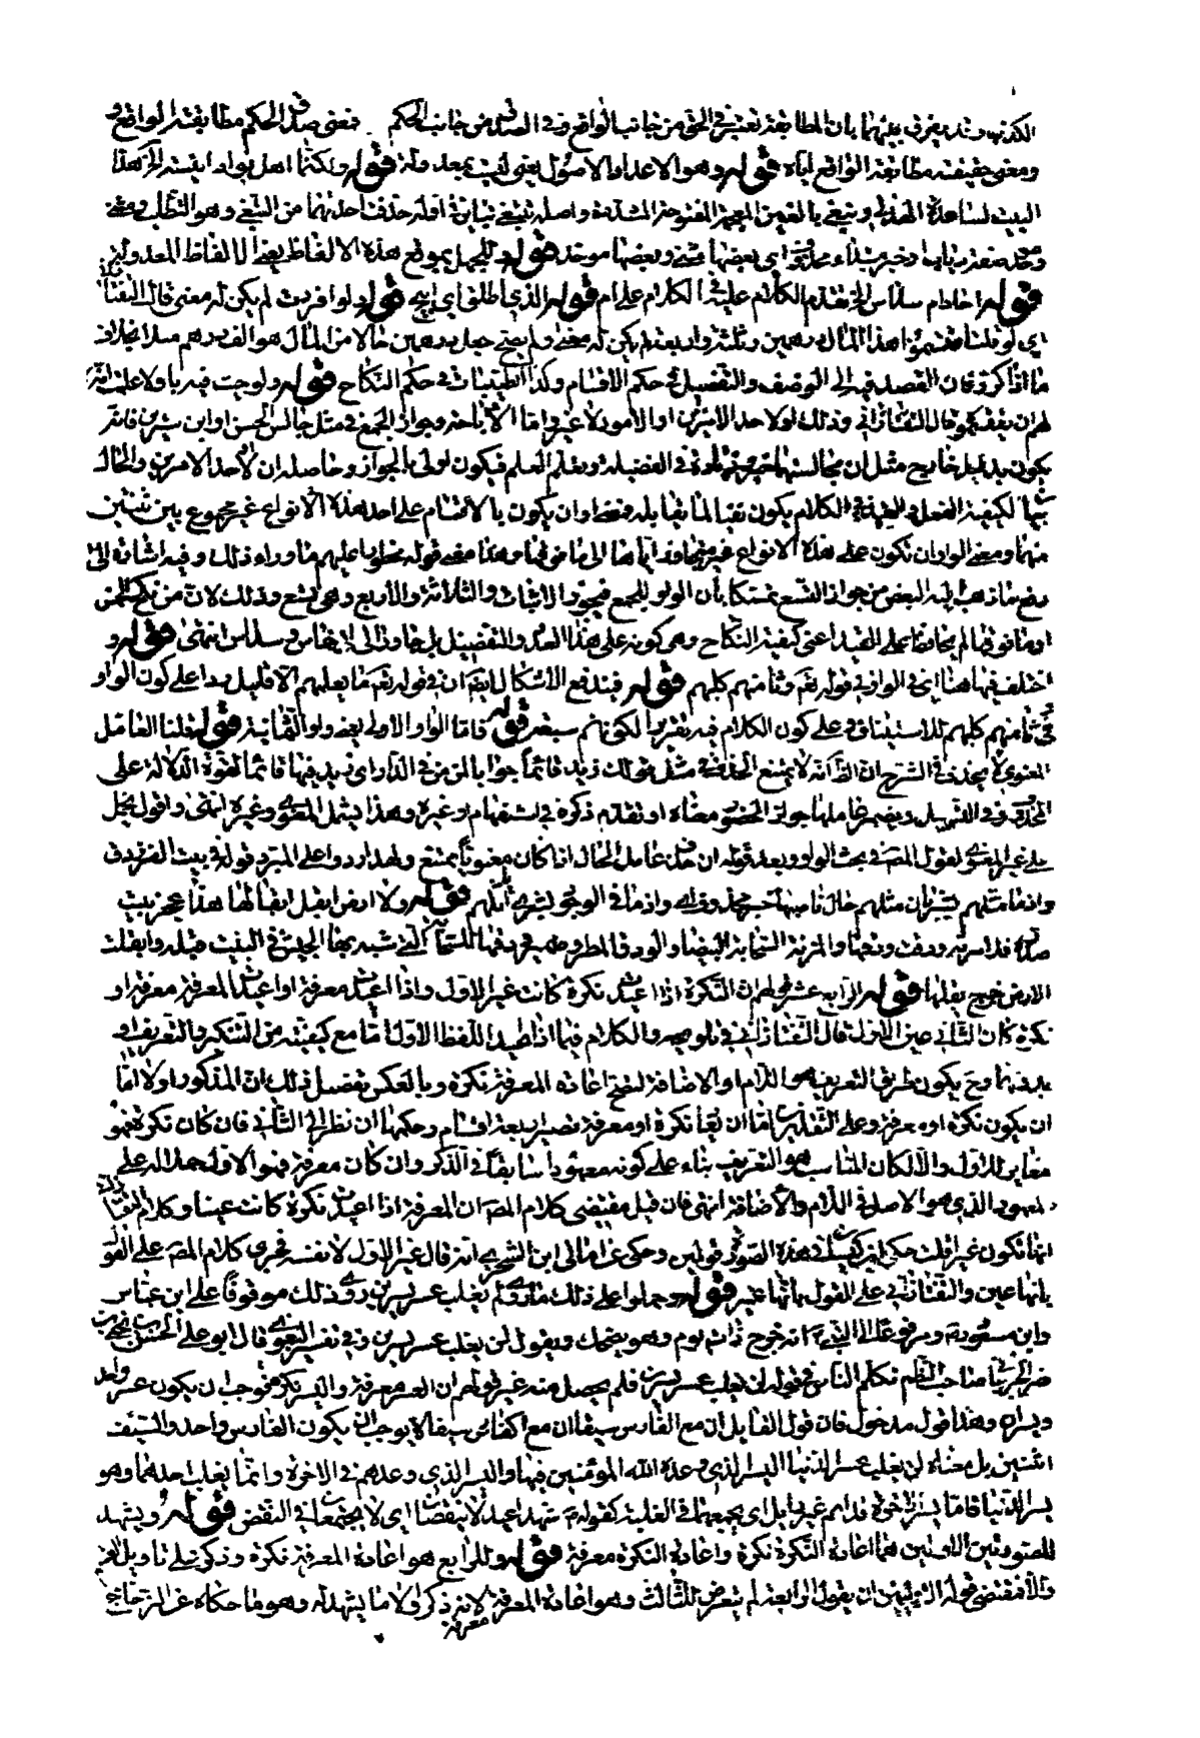 الكذب وقد يفرق بينهما بان المطابقة تعتبر في الحق من جانب الواقع وفي الصدق من جانب الحكم فمعنى صدق الحكم مطابقته الواقع و
ومعنى حقيقته مطابقة الواقع اياه قوله وهو الاعداد الاصول يعني ليست بمعدولة قوله ولكنما اهلي بواد انيسه الى هذا
البيت لساعدة الهذلي وتبغي بالغين المعجمة المفتوحة المشددة واصله تتبغى بتائين في اوله حذفت احداهما من التبغي وهو التطلب ومثنى
وموحد صفة ذئاب او خبر مبتداء محذوف اي بعضها مثنى وبعضها موحد قوله وللجهل بموقع هذه الالفاظ يعني الالفاظ المعدولة
قوله احاد ام سداس الخ تقدم الكلام عليه في الكلام على ام قوله الذي اطلق اي ابيح قوله ولو افردت لم يكن له معنى قال التفتازاني
اي لو قلت اقتسموا هذا المال درهمين وثلثة واربعة لم يكن له معنى ولم يصح جعل درهمين حالا من المال هو الف درهم مثلا بخلاف
ما اذا كرر فان القصد فيه الى الوصف والتفصيل في حكم الاقسام وكذا الطيبات في حكم النكاح قوله ولو جئت فيه باو لاعلمت انه
لهم ان يقفوا قال التفتازاني وذلك لاولاحد الامرين او الامور لا غير واما الاباحة وجواز الجمع في مثل جالس الحسن او ابن سيرين فانه
يكون بدليل خارج مثل ان مجالستهما في الفضيلة وتعلم العلم فيكون اولى بالجواز وحاصله ان لاحد الامرين والحال
بيان لكيفية الفعل والقيد في الكلام يكون نفيا لما يقابله فمعنى او ان يكون بالاقسام على احد هذه الانواع غير مجموع بين شيئين
منها ومعنى الواو ان تكون على هذه الانواع غير متجاوز اياها الى ما فوقها وهذا معنى قوله محظورا عليهم ما وراء ذلك وفيه اشارة الى
دفع ما ذهب اليه البعض من جواز التسع تمسكا بان الواو للجمع فيجوز الاثنان والثلاثة والاربع وهي تسع وذلك لان من نكح الخمس
او ما فوقها لم يحافظ على القيد اعني كيفية النكاح وهي كونه على هذا العدد والتفصيل بل جاوزه الى الخماس وسداس انتهى قوله و
اختلف فيها هنا اي في الواو في قوله تعالى وثامنهم كلبهم قوله فيندفع الاشكال ايضا ان في قوله تعالى ما يعلمهم الا قليل يدل على كون الواو
في ثامنهم كلبهم للاستيناف وعلى كون الكلام فيه تقريرا لكونهم سبعة قوله فاما الواو الاولى يعني واو الثمانية قوله قلنا العامل
المعنوي لا يحذف في الشرح ان الظاهر انه لا يمتنع الحذف في مثل قولك زيد قائما جوابا لمن من في الدار اي زيد فيها قائما لقوة الدلالة على
المحذوف وفي التسهيل ويضمر عاملها جوازا لحضور معناه او تقدم ذكره في استفهام وغيره وهذا يشمل المعنوي وغيره انتهى واقول يحمل
على غير المعنوي لقول المص في بحث الواو وبعد قوله ان حذف عامل الحال اذا كان معنويا ممتنع ولهذا ردوا على المبرد قوله في بيت الفرزدق
واذ ما مثلهم بشر ان مثلهم حال ناصبها خبر محذوف اي واذ ما في الوجود بشر مثلهم قوله ولا ارض ابقل ابقالها هذا عجز بيت
صدره فلا مزنة ودقت ودقها والمزنة السحابة البيضاء والودق المطر وضمير ودقها للسحابة التي شبه بها الجيش في البيت قبله وابقلت
الارض خرج بقلها قوله الرابع عشر قولهم ان النكرة اذا اعيدت نكرة كانت غير الاول واذا اعيدت معرفة او اعيدت المعرفة معرفة او
نكرة كان الثاني عين الاول قال التفتازاني في تلويحه والكلام فيما اذا اعيد اللفظ الاول اما مع كيفيته من التنكير والتعريف او
بدونها وح يكون طريق التعريف هو اللام او الاضافة ليصح اعادة المعرفة نكرة وبالعكس تفصيل ذلك ان المذكور اولا اما
ان يكون نكرة او معرفة وعلى التقديرين اما ان يعاد نكرة او معرفة فيصير اربعة اقسام وحكمها ان ننظر الى الثاني فان كان نكرة فهو
مغاير للاول والا لكان المناسب هو التعريف بناء على كونه معهودا سابقا في الذكر وان كان معرفة فهو الاول حملا له على
المعهود الذي هو الاصل في اللام والاضافة انتهى فان قيل مقتضى كلام المص ان المعرفة اذا اعيدت نكرة كانت عينا وكلام التفتازاني
انها تكون غيرا قلت حكى في هذه الصورة قولين وحكى عزاها الى ابن الشجري انه قال غير الاول لا نفسه فجرى كلام المص على القول
بانها عين والتفتازاني على القول بانها غير قوله وحملوا على ذلك ما روي لن يغلب عسر يسرين روي ذلك موقوفا على ابن عباس
وابن مسعود ومرفوعا الى النبي انه خرج ذات يوم وهو يضحك ويقول لن يغلب عسر يسرين وفي تفسير البغوي قال ابو علي الحسن بن يحيى بن
نصر الجرجاني صاحب النظم تكلم الناس في قوله لن يغلب عسر يسرين فلم يحصل منه غير قولهم ان العسر معرفة واليسر نكرة فوجب ان يكون عسر واحد
ويسران وهذا قول مدخول فان قول القايل ان مع الفارس سيفا ان مع الفارس سيفا لا يوجب ان يكون الفارس واحد والسيف
اثنين بل معناه لن يغلب عسر الدنيا اليسر الذي وعده الله المؤمنين فيها واليسر الذي وعدهم في الاخرة وانما يغلب احدهما وهو
يسر الدنيا فاما يسر الاخرة فدائم غير زايل اي لا يجمعهما في الغلبة كقوله شهرا عيد لا ينقصان اي لا يجتمعان في النقص قوله ويشهد
للصورتين الاوليين هما اعادة النكرة نكرة واعادة النكرة معرفة قوله وللرابع هو اعادة المعرفة نكرة وذكر
والا فمقتضى قوله الاوليين ان يقول الرابعة ولم يتعرض للثالث وهو اعادة المعرفة معرفة لانه ذكر اولا ما يشهد له وهو ما حكاه عن الزجاج